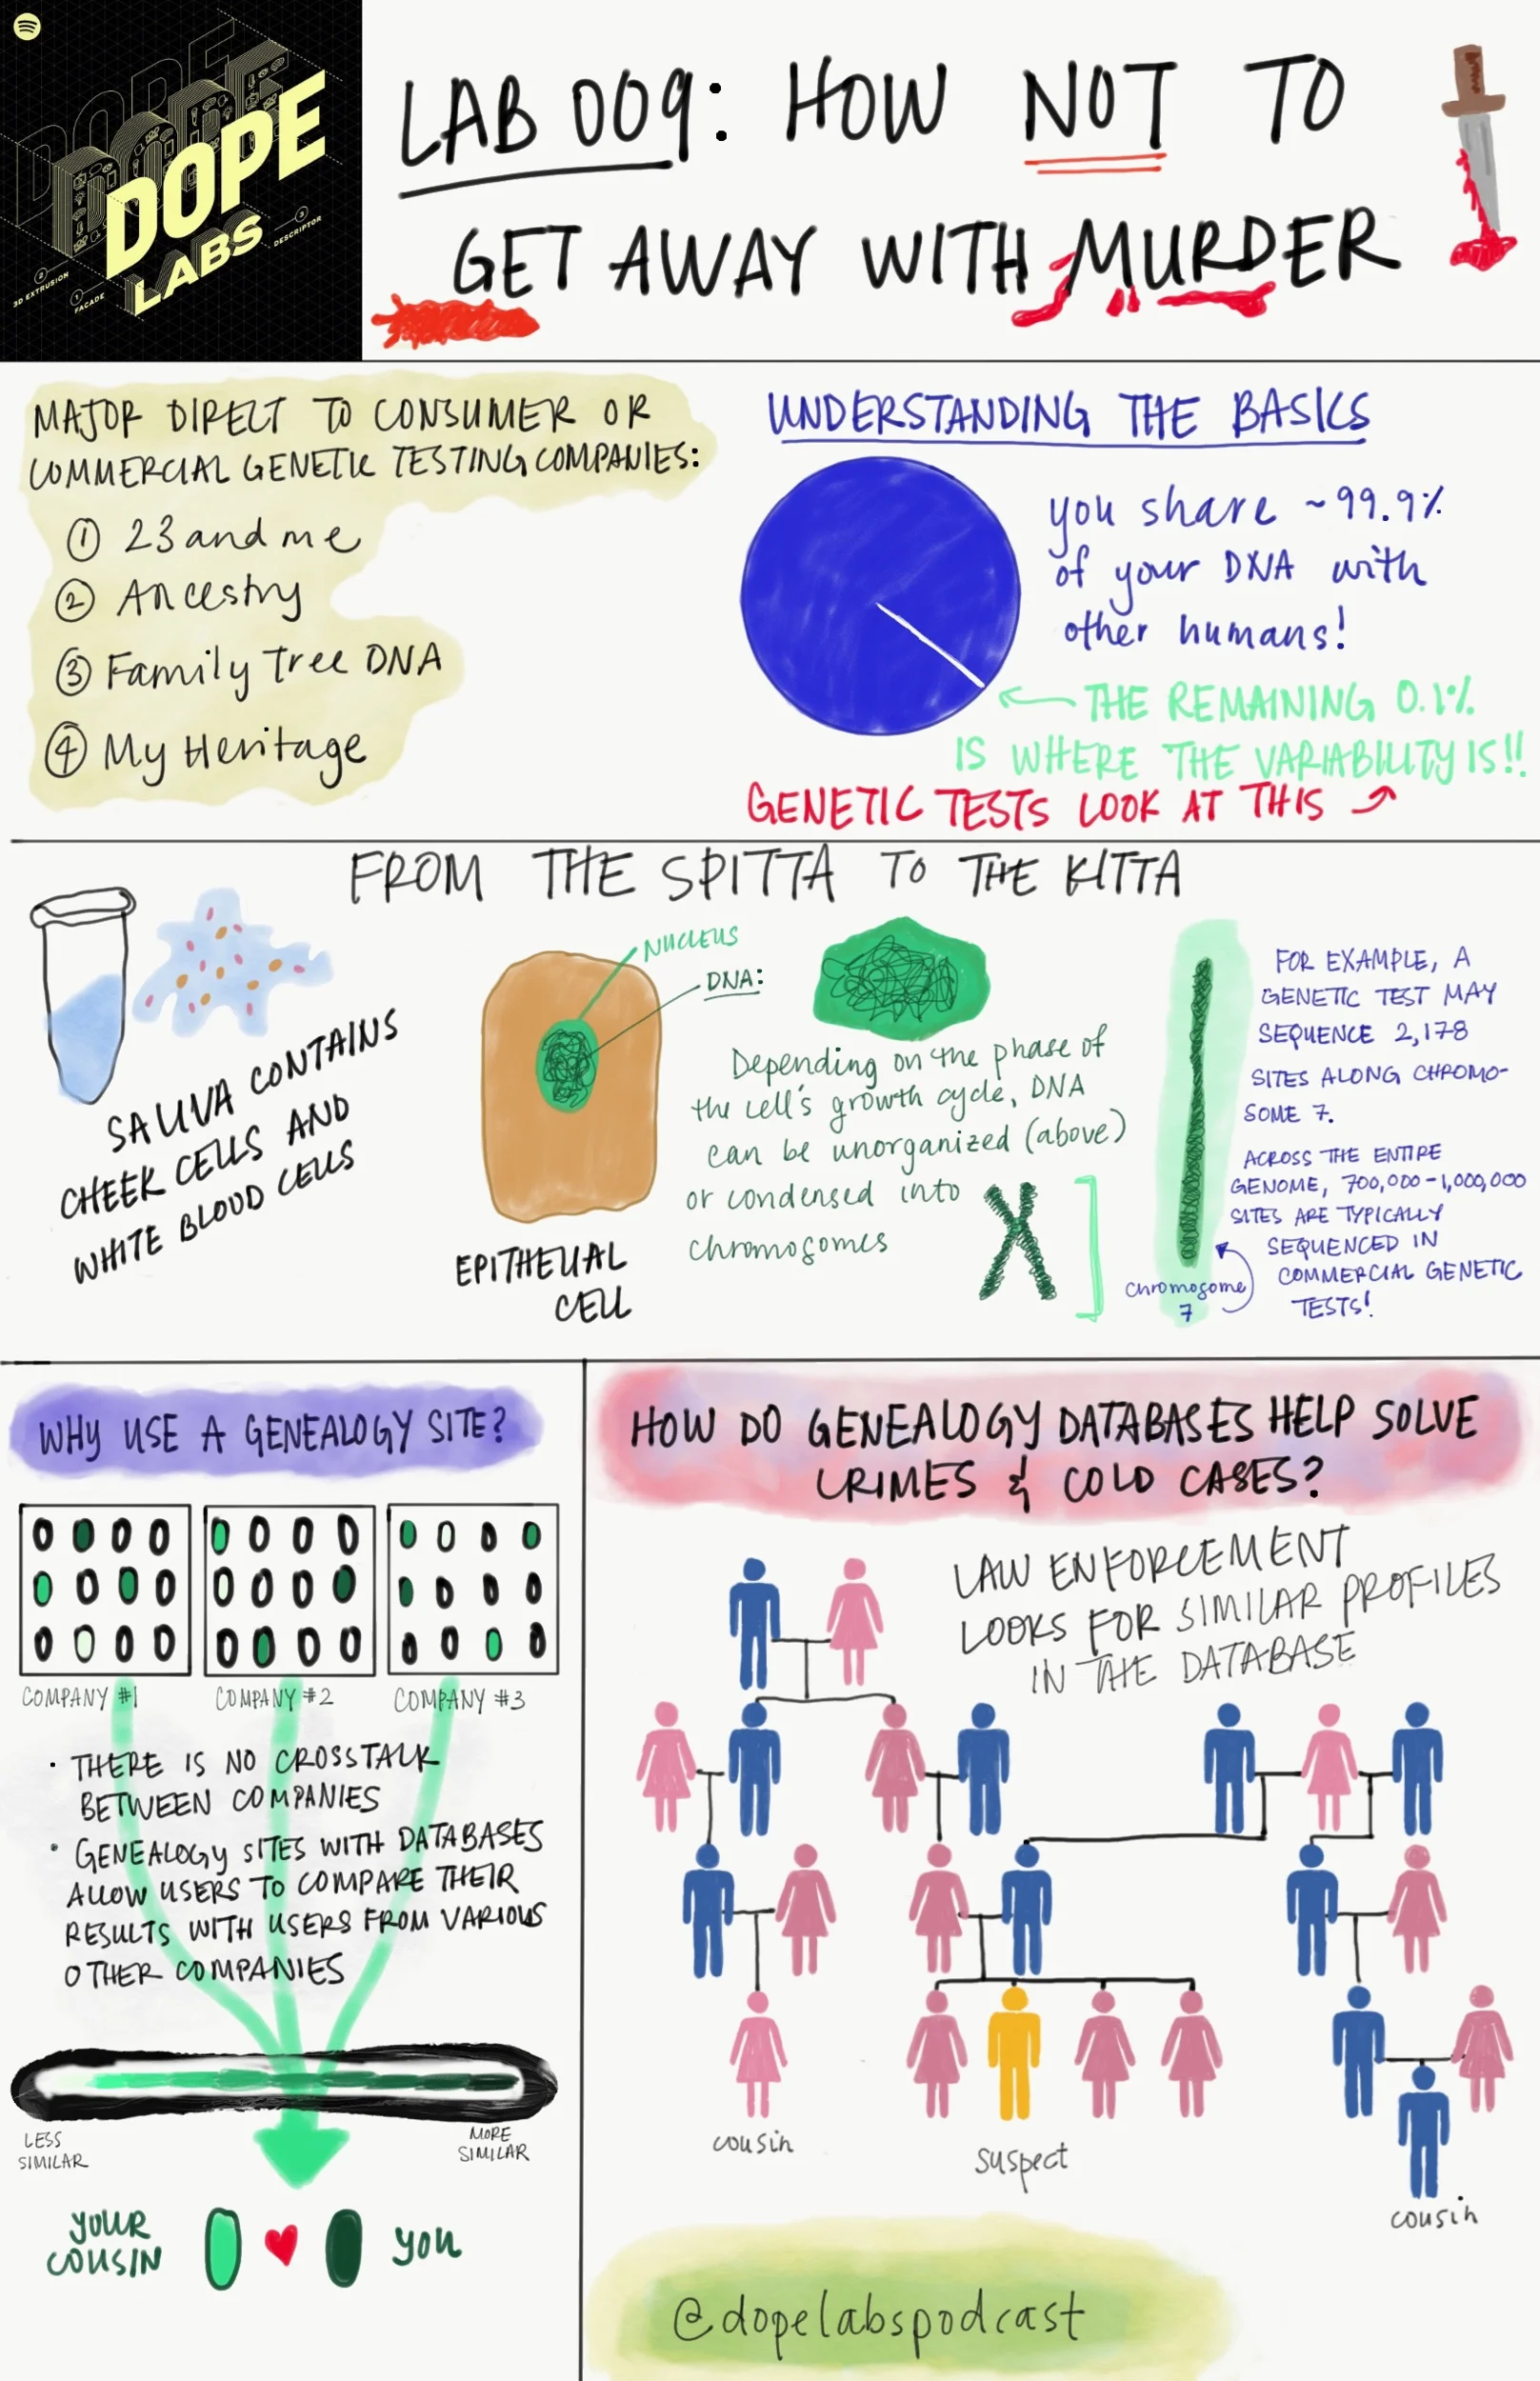 DOPE
DOPE
DOPE
LABS
3D EXTRUSION
2
FACADE
1
DESCRIPTOR
3
LAB 009: HOW NOT TO
GET AWAY WITH MURDER
MAJOR DIRECT TO CONSUMER OR
COMMERCIAL GENETIC TESTING COMPANIES:
① 23 and me
② Ancestry
③ Family Tree DNA
④ My Heritage
UNDERSTANDING THE BASICS
you share ~99.9%
of your DNA with
other humans!
THE REMAINING 0.1%
IS WHERE THE VARIABILITY IS!!
GENETIC TESTS LOOK AT THIS
FROM THE SPITTA TO THE KITTA
SALIVA CONTAINS
CHEEK CELLS AND
WHITE BLOOD CELLS
NUCLEUS
DNA:
EPITHELIAL
CELL
Depending on the phase of
the cell's growth cycle, DNA
can be unorganized (above)
or condensed into
chromosomes
chromosome
7
FOR EXAMPLE, A
GENETIC TEST MAY
SEQUENCE 2,178
SITES ALONG CHROMO-
SOME 7.
ACROSS THE ENTIRE
GENOME, 700,000-1,000,000
SITES ARE TYPICALLY
SEQUENCED IN
COMMERCIAL GENETIC
TESTS!
WHY USE A GENEALOGY SITE?
COMPANY #1
COMPANY #2
COMPANY #3
· THERE IS NO CROSSTALK
BETWEEN COMPANIES
· GENEALOGY SITES WITH DATABASES
ALLOW USERS TO COMPARE THEIR
RESULTS WITH USERS FROM VARIOUS
OTHER COMPANIES
LESS
SIMILAR
MORE
SIMILAR
YOUR
COUSIN
you
HOW DO GENEALOGY DATABASES HELP SOLVE
CRIMES & COLD CASES?
LAW ENFORCEMENT
LOOKS FOR SIMILAR PROFILES
IN THE DATABASE
cousin
suspect
cousin
@dopelabspodcast